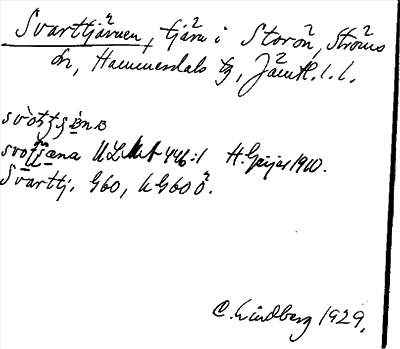 Svarttjärnen, tjärn i Storön, Ströms
sn, Hammerdals tg, Jämtl. l.
svoʈʈʂæna ULMA 446:1 H. Geijer 1910.
Svarttj. G60, LG60Ö.
C. Lindberg 1929.